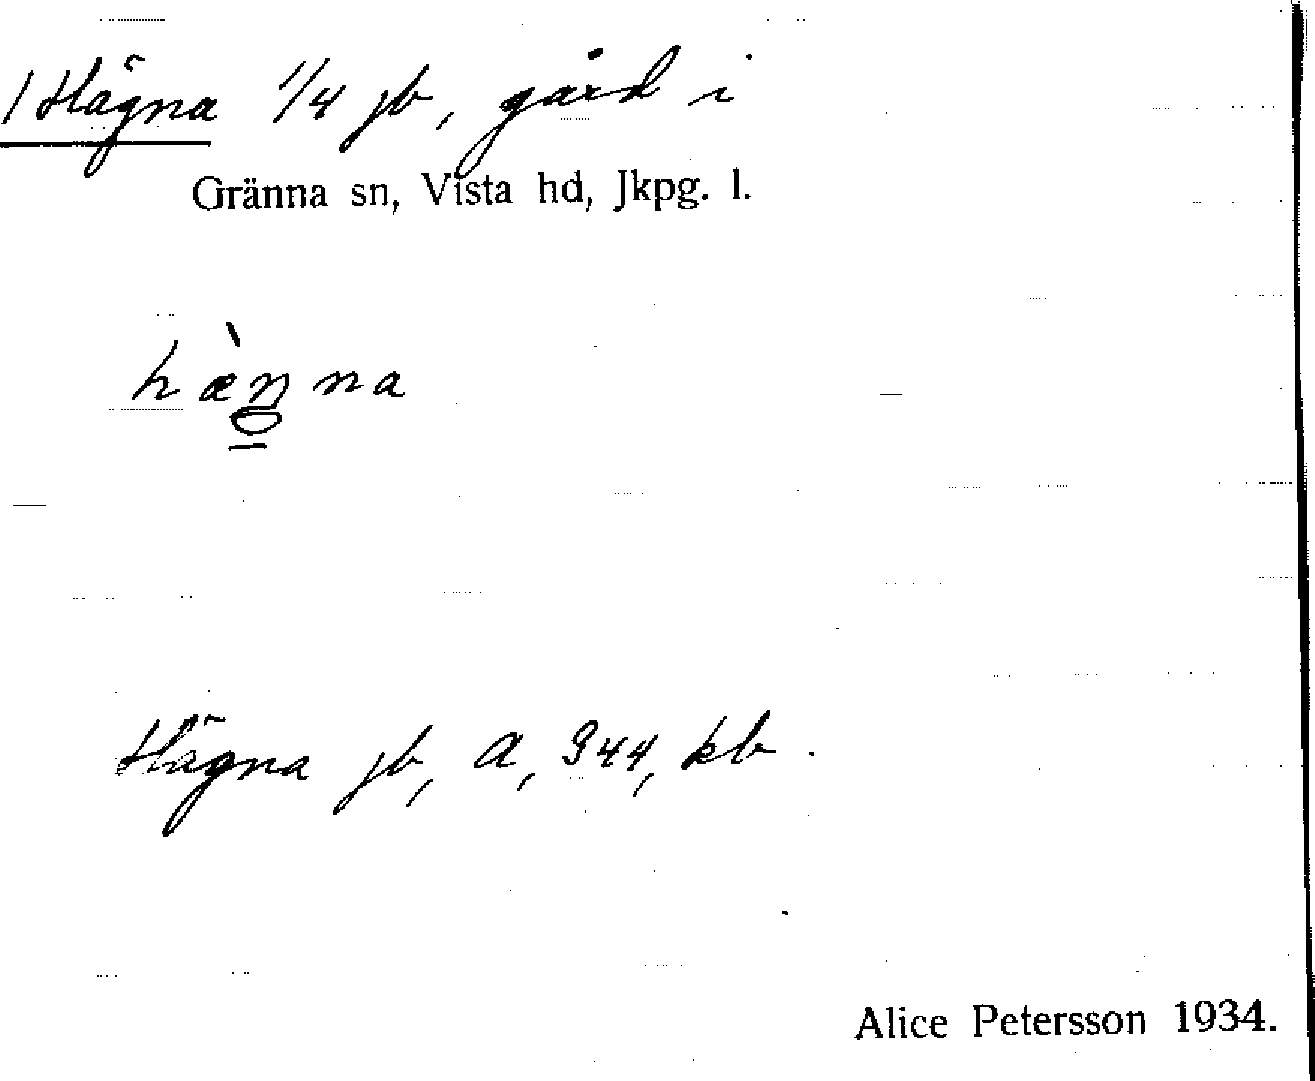 1 Hägna 1/4 jb, gård i
Gränna sn, Vista hd, Jkpg. l.
hæ̀ŋna
Hägna jb, A, 344, kb.
Alice Petersson 1934.